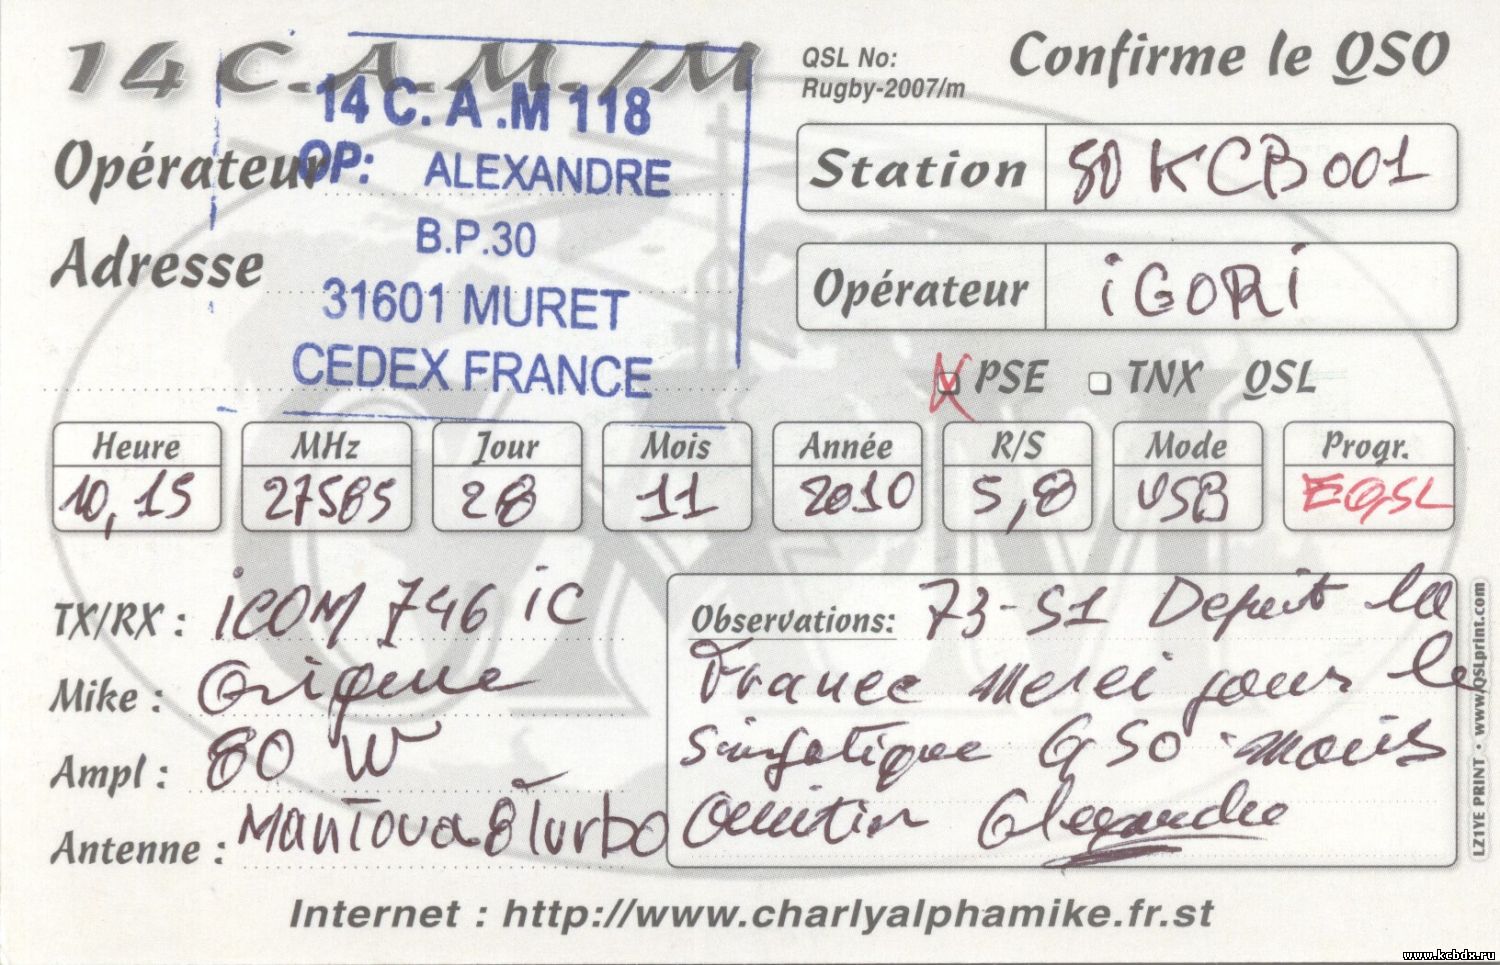 14 C.A.M./M
14 C. A .M 118
QSL No:
Rugby-2007/m
Confirme le QSO
Opérateur
OP: ALEXANDRE
B.P.30
Adresse
31601 MURET
CEDEX FRANCE
Station 50 KCB 001
Opérateur iGORi
PSE TNX QSL
Heure MHz Jour Mois Année R/S Mode Progr.
10,15 27585 28 11 2010 5,8 USB EQSL
TX/RX : iCOM 746 iC
Mike : Origine
Ampl : 80 W
Antenne : MANTova 8 Turbo
Observations: 73-51 Depuit la
France Merci pour le
QSO
Alexandre
Internet : http://www.charlyalphamike.fr.st
LZ1YE PRINT • www.QSLprint.com
www.kcbdx.ru